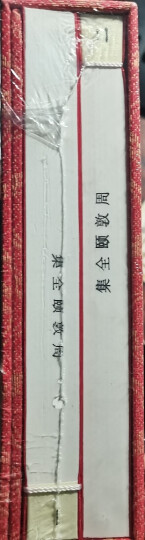 周敦頤全集
周敦頤全集